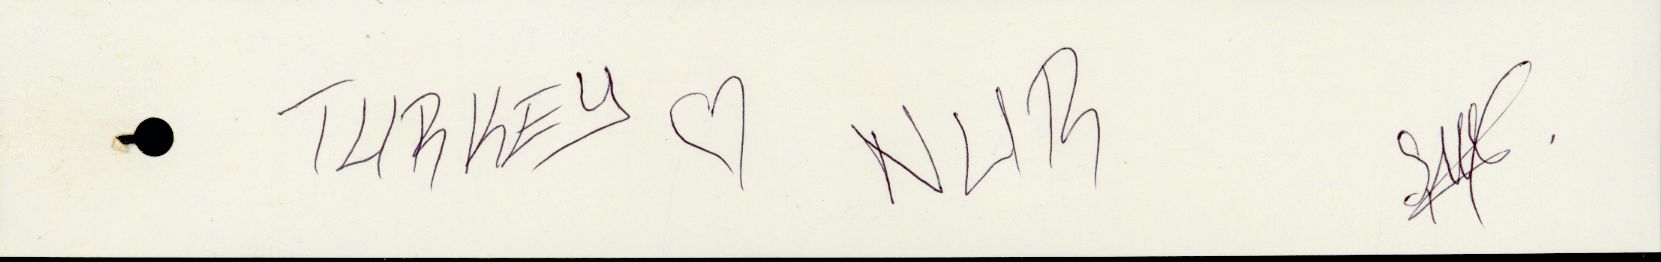 TURKEY ♡ NUR